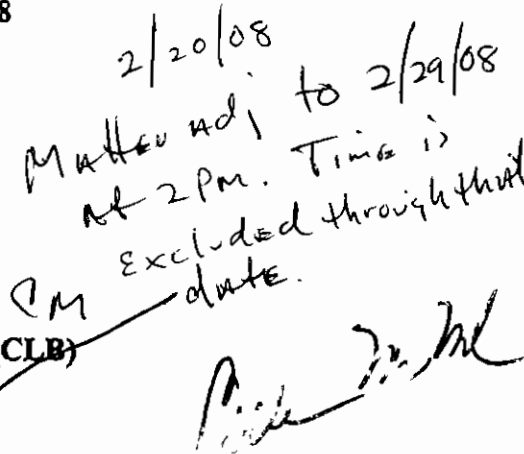 8
2/20/08
Matter adj to 2/29/08
at 2 PM. Time is
Excluded through that
date.
CM
CLB)